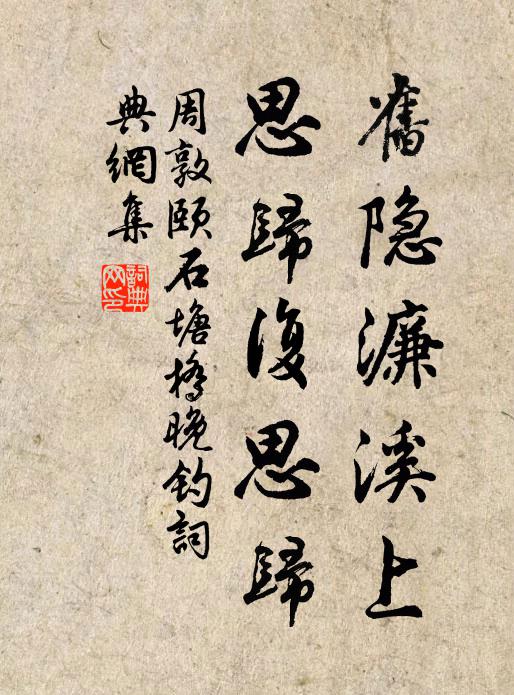 舊隐濂溪上
思歸復思歸
周敦頤石塘橋晚釣詞
典網集
詞典
网印